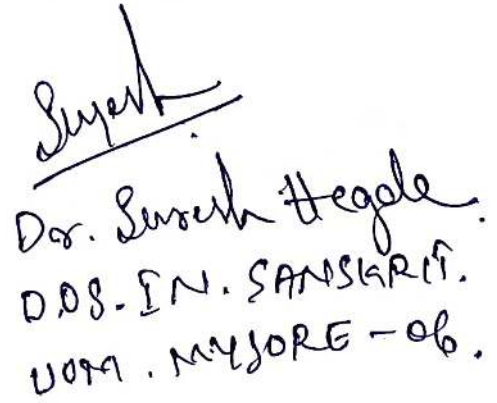 Suresh
Dr. Suresh Hegde.
D.O.S. IN. SANSKRIT.
UOM. MYSORE - 06.